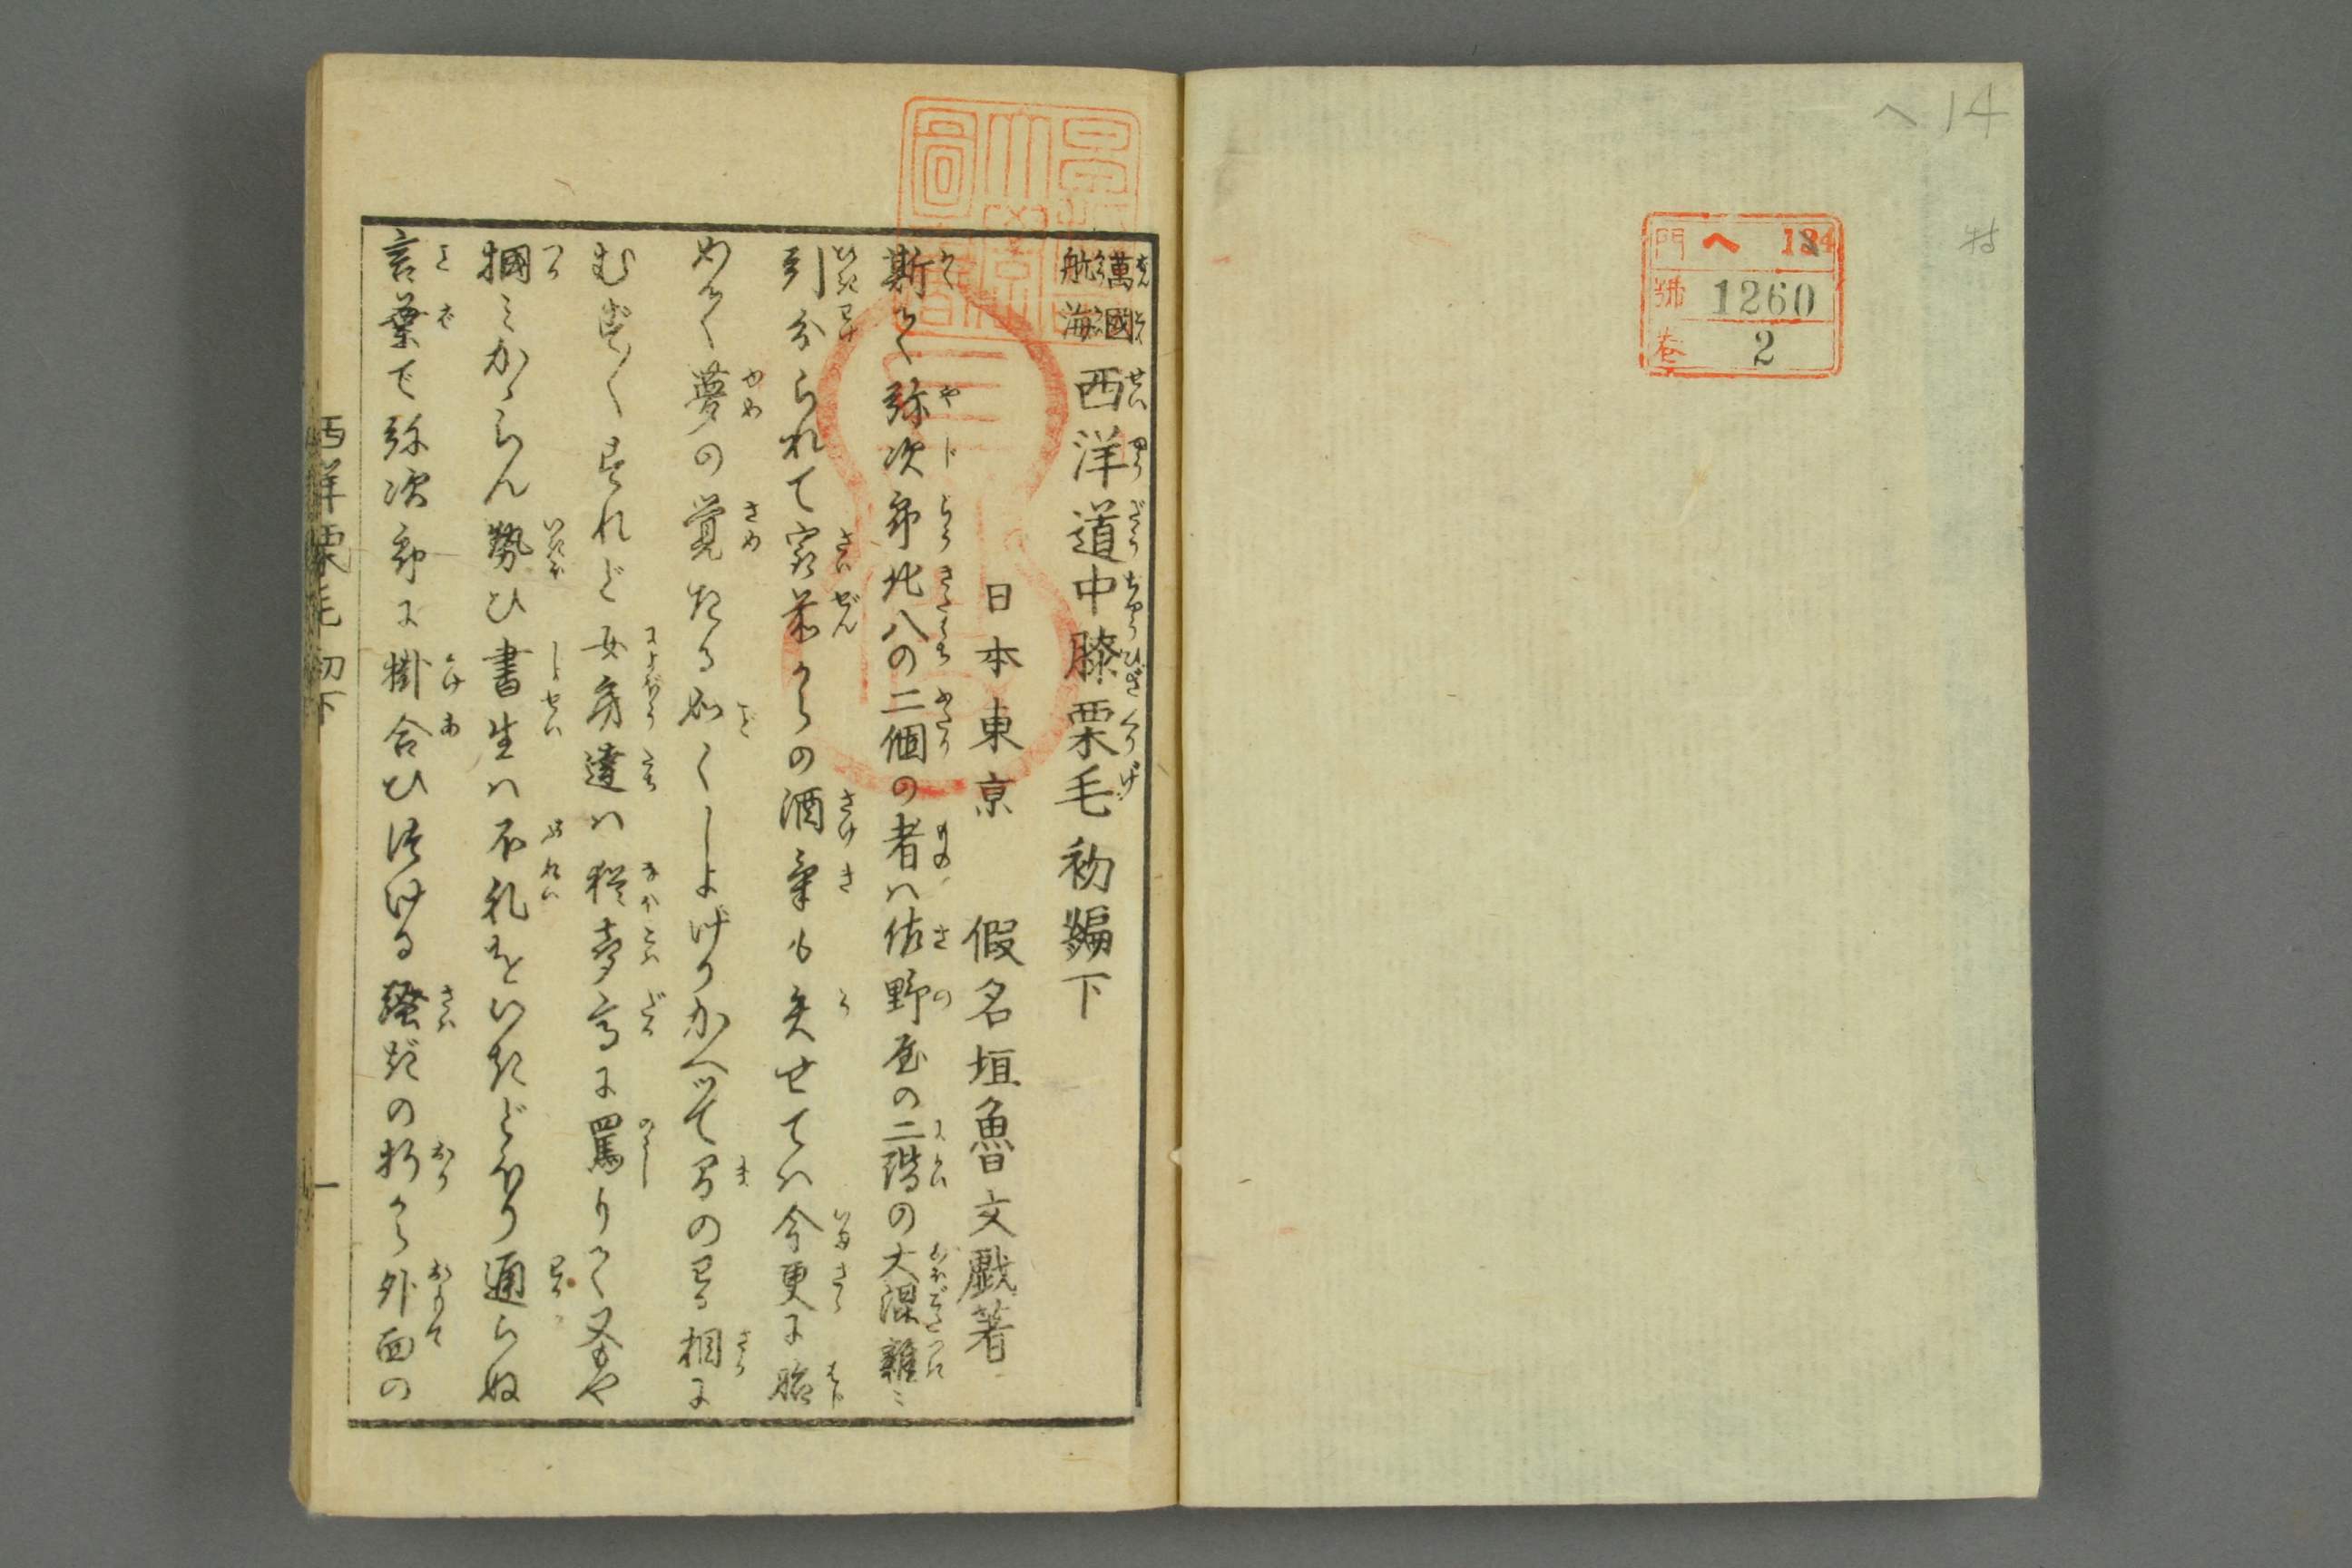 へ 14
門 へ 14
號 1260
巻 2
萬國
航海
西洋道中膝栗毛初編下
日本東京 假名垣魯文戲著
斯て弥次郎北八の二個の者ハ佐野屋の二階の大混雑ミ
引分られて最前からの酒氣も失せてハ今更に
めて夢の覚たる如くしよげりかへツて間のわる相に
れど女房達ハ猶声高に罵りて又もや
掴ミかゝらん勢ひ書生ハ不礼をいたどほり通らぬ
言葉で弥次郎に掛合ひ居ける騒だの折から外面の
西洋栗毛 初下
一